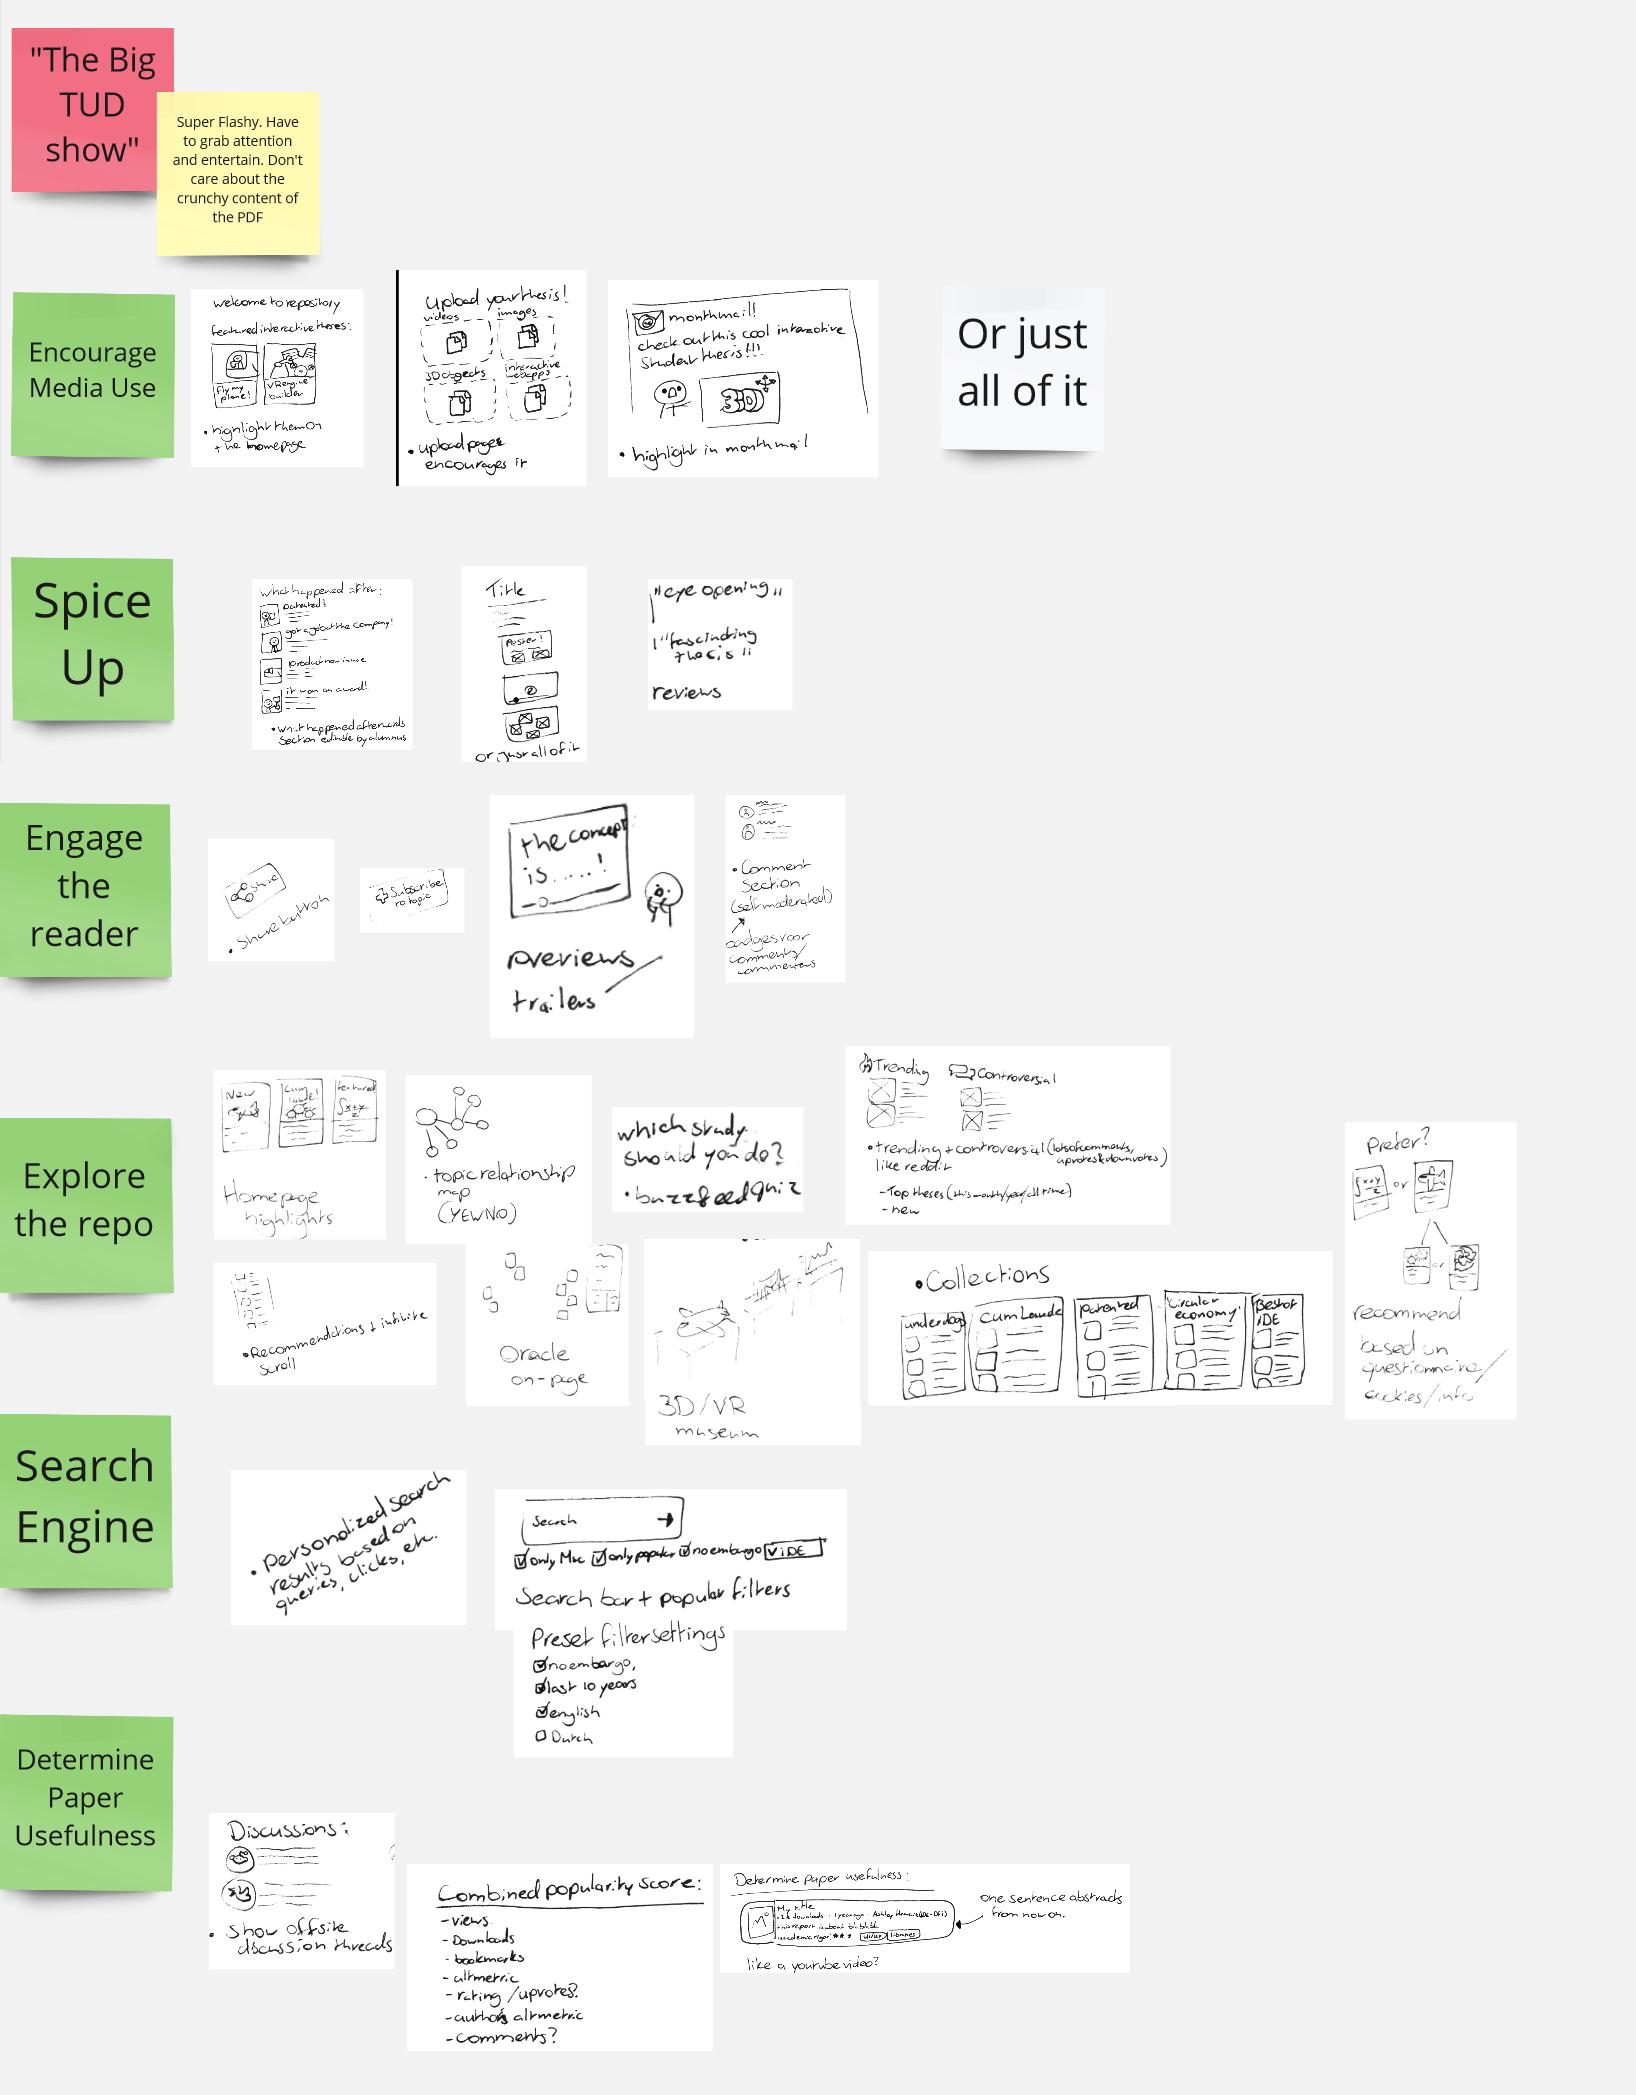 "The Big
TUD
show"
Super Flashy. Have
to grab attention
and entertain. Don't
care about the
crunchy content of
the PDF
Encourage
Media Use
welcome to repository
featured interactive theses:
fly my
plane!
VR engine
builder
• highlight them on
the homepage
Upload your thesis!
videos
images
3D objects
interactive
webapps
• upload page
encourages it
monthmail!
check out this cool interactive
Student thesis!!!
3D
• highlight in monthmail
Or just
all of it
Spice
Up
what happened after:
patented!
got a job at the company!
product now in use
it won an award!
• what happened afterwards
section editable by alumnus
Title
Poster!
or just all of it
"eye opening"
"fascinating
thesis"
reviews
Engage
the
reader
Share
• Share button
Subscribe
to topic
the concept
is.....!
previews
trailers
• Comment
Section
(self moderated)
badges voor
comments/
commenters
Explore
the repo
New
Cum
laude!
featured
∫x+y/z
Homepage
highlights
• topic relationship
map
(YEWNO)
which study
should you do?
• buzzfeed quiz
Trending
Controversial
• trending + controversial (lots of comments,
upvotes & downvotes)
like reddit
- Top theses (this month/year/all time)
- new
Prefer?
∫x+y/z or
or
recommend
based on
questionnaire/
cookies/info
• Recommendations + infinite
scroll
Oracle
on-page
3D/VR
museum
• Collections
underdogs
Cum Laude
patented
Circular
economy
Best of
IDE
Search
Engine
• personalized search
results based on
queries, clicks, etc.
Search
only Msc only popular no embargo IDE
Search bar + popular filters
Preset filter settings
no embargo,
last 10 years
english
Dutch
Determine
Paper
Usefulness
Discussions:
• Show offsite
discussion threads
Combined popularity score:
- views
- Downloads
- bookmarks
- altmetric
- rating / upvotes?
- authors altmetric
- Comments?
Determine paper usefulness:
My title
downloads · 1 year ago · Ashley
this report is about bla blah
academic rigor:
libraries
one sentence abstracts
from now on.
like a youtube video?